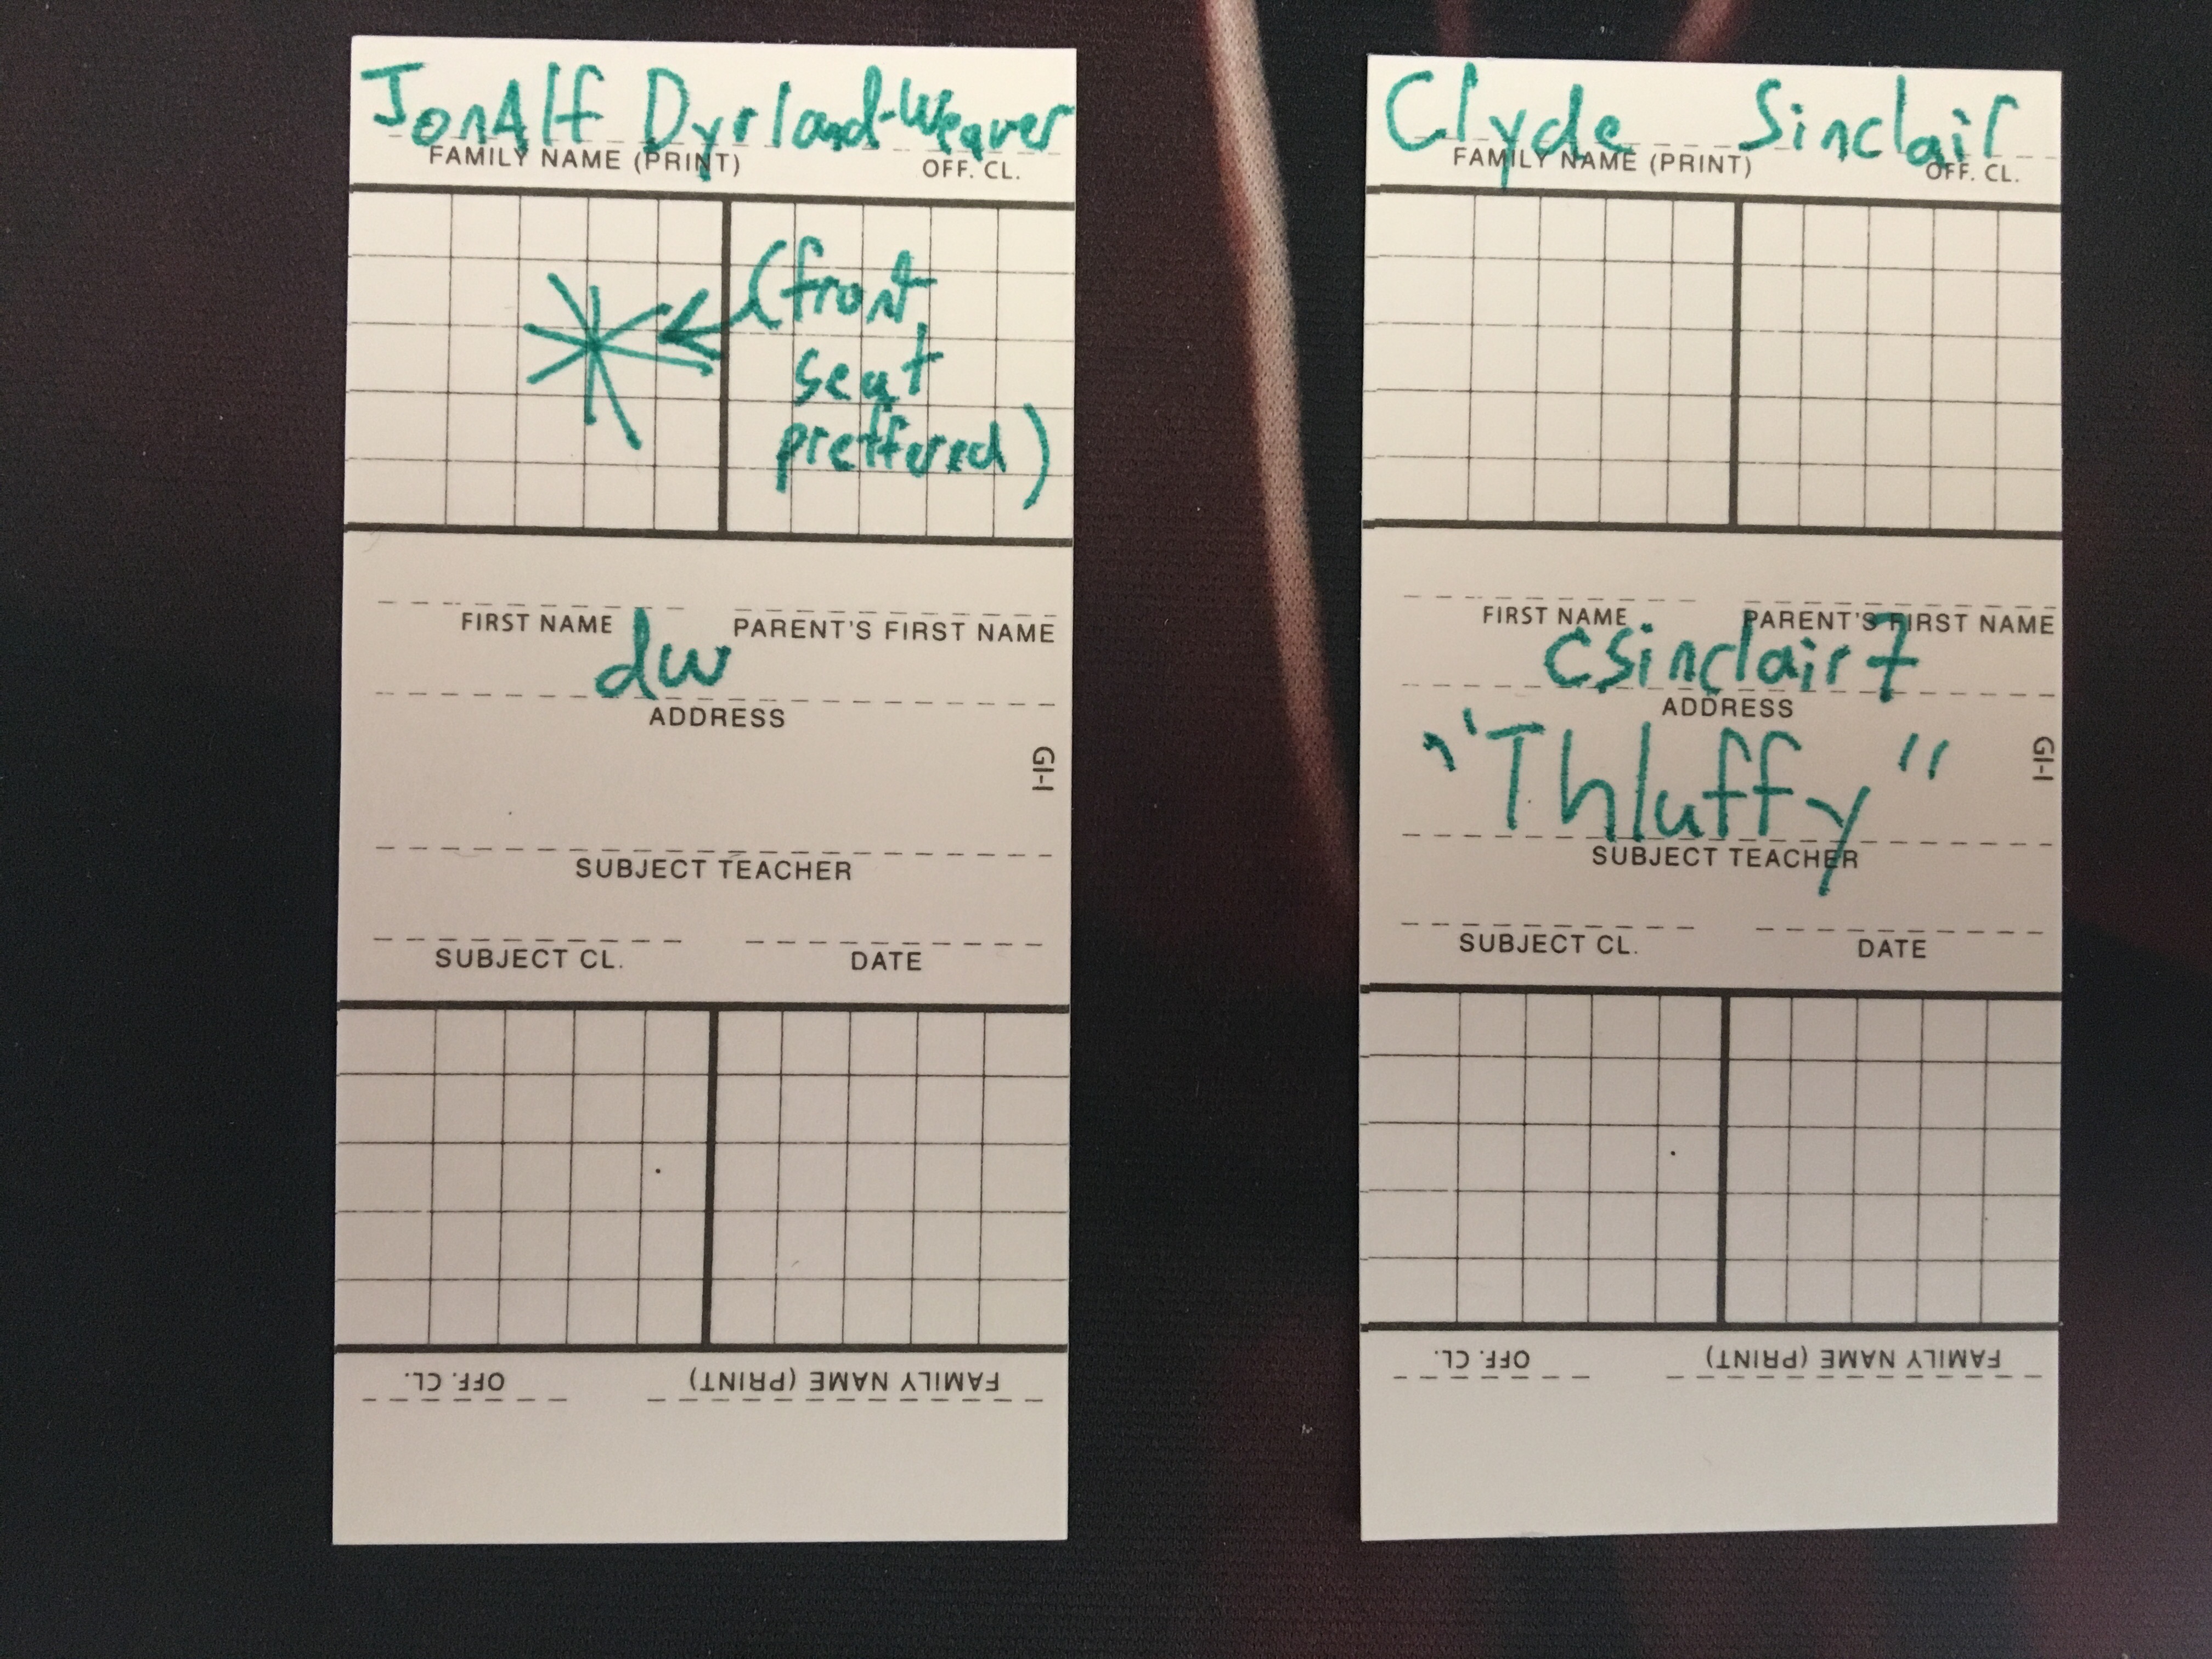 JonAlf Dyrland-Weaver
FAMILY NAME (PRINT) OFF. CL.
(front
seat
preffered)
FIRST NAME PARENT'S FIRST NAME
dw
ADDRESS
GI-I
SUBJECT TEACHER
SUBJECT CL. DATE
FAMILY NAME (PRINT) OFF. CL.
Clyde Sinclair
FAMILY NAME (PRINT) OFF. CL.
FIRST NAME PARENT'S FIRST NAME
csinclair7
ADDRESS
"Thluffy"
GI-I
SUBJECT TEACHER
SUBJECT CL. DATE
FAMILY NAME (PRINT) OFF. CL.